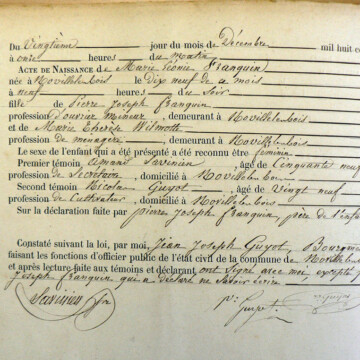 Du Vingtième jour du mois de Décembre mil huit ce
à onze heures du matin
ACTE DE NAISSANCE de Marie Léonie Franquin
née à Noville les Bois le dix neuf de ce mois
à neuf heures du soir
fille de Pierre Joseph Franquin
profession d'ouvrier mineur, demeurant à Noville les Bois
et de Marie Thérèse Wilmotte
profession de ménagère, demeurant à Noville les Bois
Le sexe de l'enfant qui a été présenté a été reconnu être féminin
Premier témoin Amand Savinien, âgé de Cinquante neuf
profession de Secrétaire, domicilié à Noville les Bois
Second témoin Nicolas Guyot, âgé de Vingt neuf
profession de Cultivateur, domicilié à Noville les Bois
Sur la déclaration faite par Pierre Joseph Franquin, père de l'enfa
Constaté suivant la loi, par moi, Jean Joseph Guyot, Bourgme
faisant les fonctions d'officier public de l'état civil de la commune de Noville les
et après lecture faite aux témoins et déclarant ont signé avec moi, excepté
Joseph Franquin qui a déclaré ne savoir écrire
Savinien
Guyot